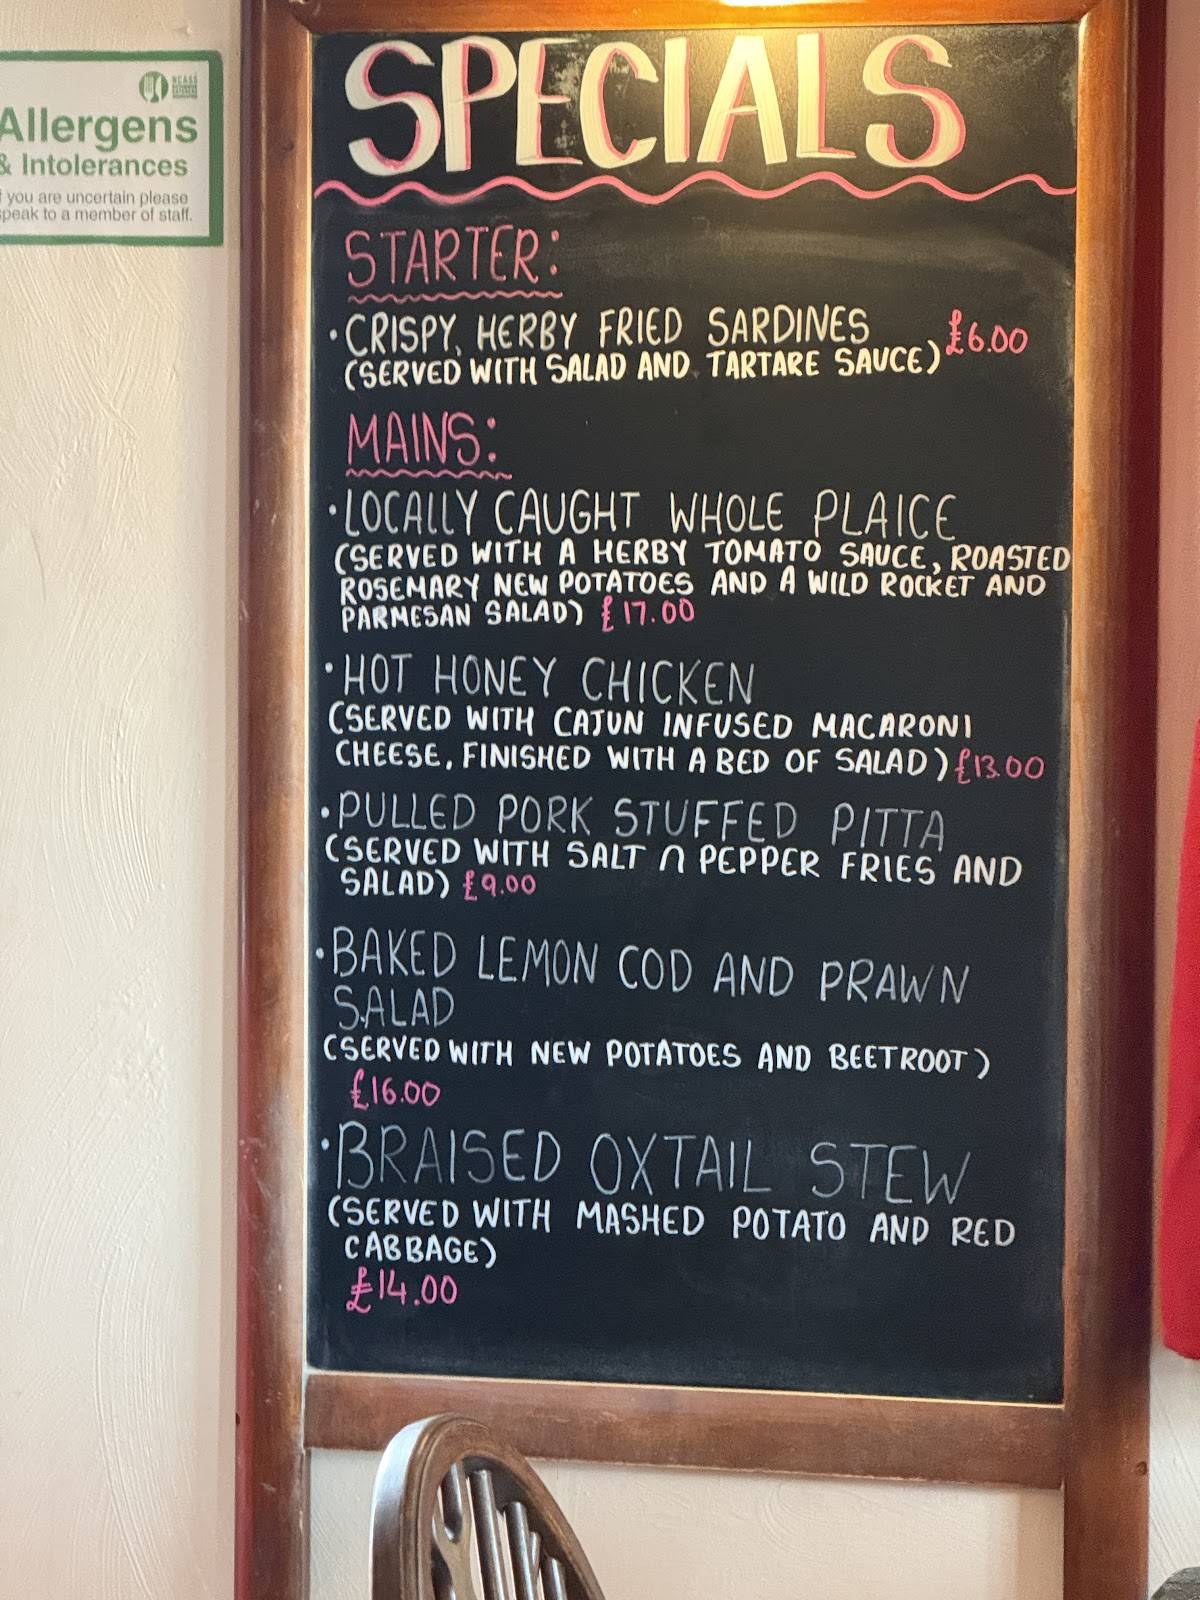 NCASS
Allergens
& Intolerances
you are uncertain please
speak to a member of staff.
SPECIALS
STARTER:
• CRISPY, HERBY FRIED SARDINES £6.00
(SERVED WITH SALAD AND TARTARE SAUCE)
MAINS:
• LOCALLY CAUGHT WHOLE PLAICE
(SERVED WITH A HERBY TOMATO SAUCE, ROASTED
ROSEMARY NEW POTATOES AND A WILD ROCKET AND
PARMESAN SALAD) £17.00
• HOT HONEY CHICKEN
(SERVED WITH CAJUN INFUSED MACARONI
CHEESE, FINISHED WITH A BED OF SALAD) £13.00
• PULLED PORK STUFFED PITTA
(SERVED WITH SALT n PEPPER FRIES AND
SALAD) £9.00
• BAKED LEMON COD AND PRAWN
SALAD
(SERVED WITH NEW POTATOES AND BEETROOT)
£16.00
• BRAISED OXTAIL STEW
(SERVED WITH MASHED POTATO AND RED
CABBAGE)
£14.00